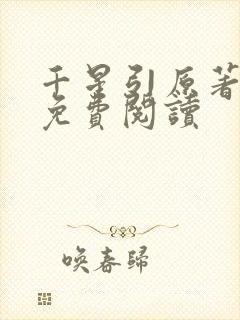 千星引原著
免費閱讀
喚春歸